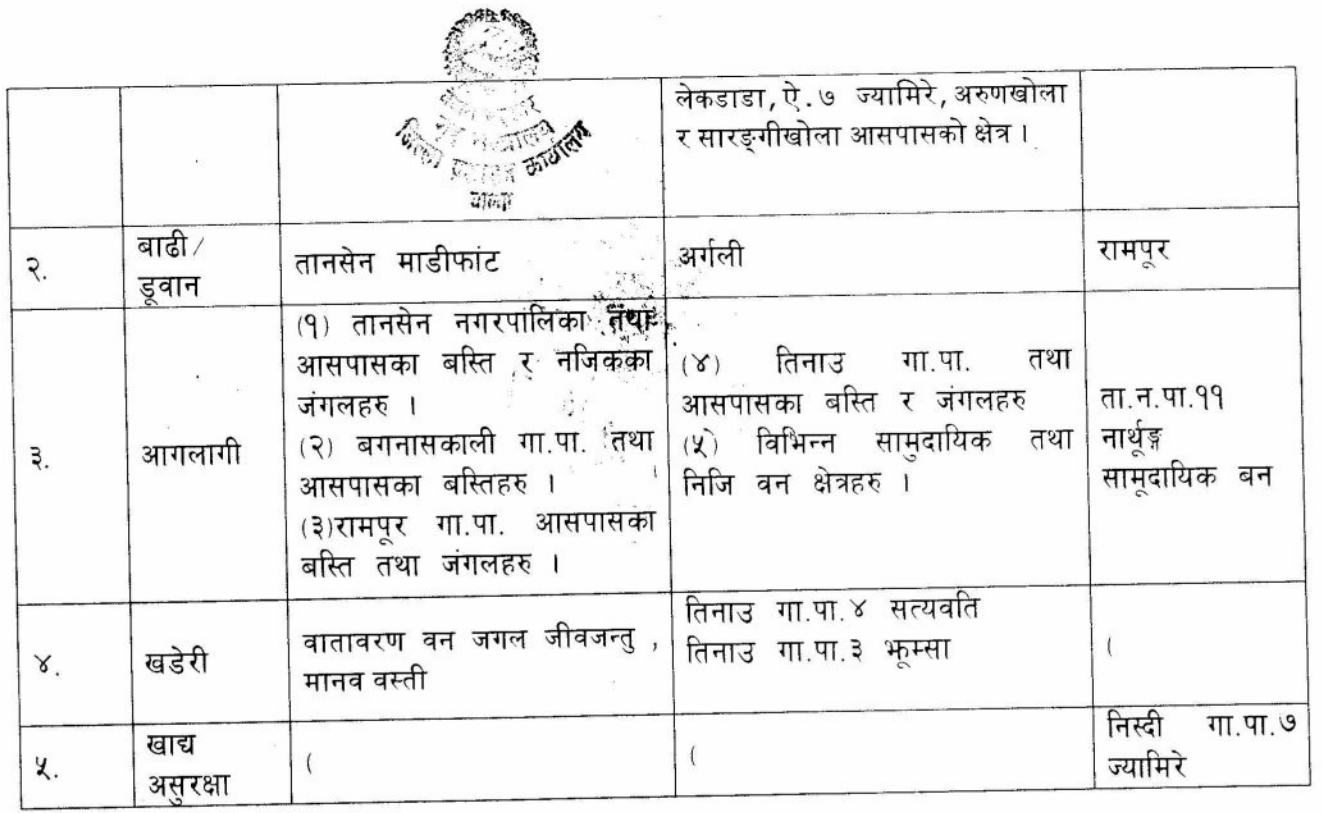 लेकडाडा, ऐ. ७ ज्यामिरे, अरुणखोला
र सारङ्गीखोला आसपासको क्षेत्र ।
जिल्ला प्रशासन कार्यालय
पाल्पा
२.
बाढी/
डूवान
तानसेन माडीफांट
अर्गली
रामपूर
३.
आगलागी
(१) तानसेन नगरपालिका तथा
आसपासका बस्ति र नजिकका
जंगलहरु ।
(२) बगनासकाली गा.पा. तथा
आसपासका बस्तिहरु ।
(३)रामपूर गा.पा. आसपासका
बस्ति तथा जंगलहरु ।
(४) तिनाउ गा.पा. तथा
आसपासका बस्ति र जंगलहरु
(५) विभिन्न सामुदायिक तथा
निजि वन क्षेत्रहरु ।
ता.न.पा.११
नार्थूङ्ग
सामूदायिक बन
४.
खडेरी
वातावरण वन जगल जीवजन्तु ,
मानव वस्ती
तिनाउ गा.पा.४ सत्यवति
तिनाउ गा.पा.३ झूम्सा
(
५.
खाद्य
असुरक्षा
(
(
निस्दी गा.पा.७
ज्यामिरे